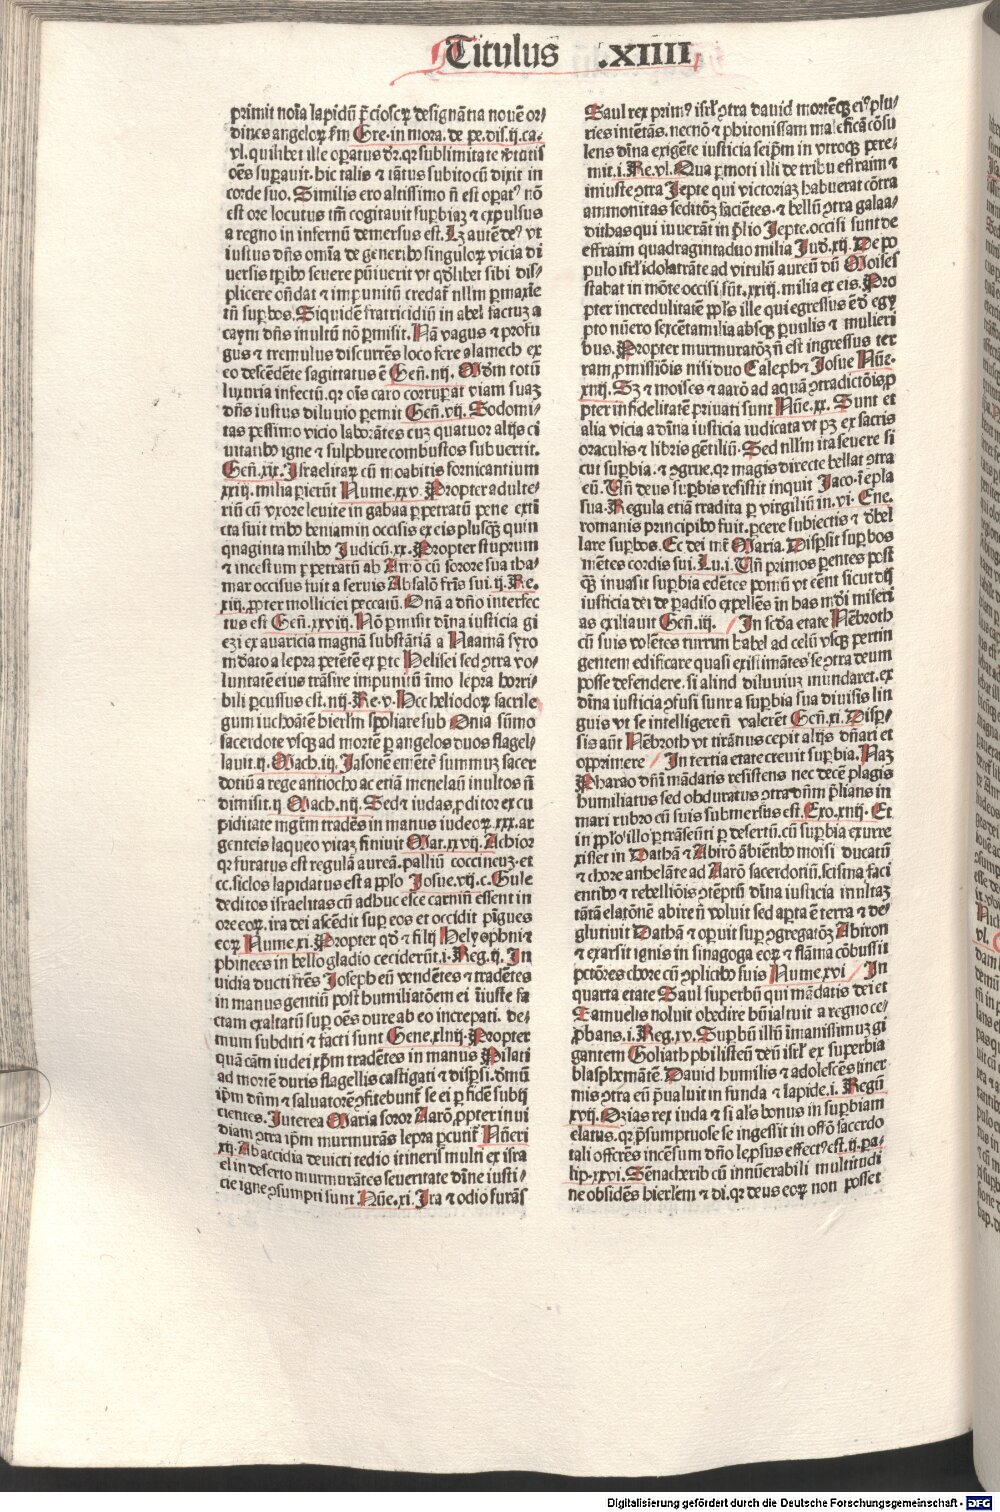 Titulus .XIIII
primit noīa lapidū p̄cioscꝝ designātia nouē or/
dines angeloꝝ fm Gre.in mora. de pe.dis.ij.ca.
vl. quilibet ille opatus dr̄.qꝛ sublimitate v̄tutis
oēs supauit. hic talis ⁊ tātus subito cū dixit in
corde suo. Similis ero altissimo n̄ est opatꝰ nō
est ore locutus tm̄ cogitauit supbiaꝫ ⁊ expulsus
a regno in infernū demersus est. Lꝫ autē deꝰ vt
iustus dn̄s om̄ia de generibꝰ singuloꝝ vicia di
uersis tꝑibꝰ seuere pūiuerit vt qd̄libet sibi dis/
plicere on̄dat ⁊ impunitū credat̄ nllm ꝑmaxie
tn̄ supbos. Siquidē fratricidiū in abel factuꝫ a
caym dn̄s inultū nō ꝑmisit. Nā vagus ⁊ profu
gus ⁊ tremulus discurrēs loco fere a lamech ex
eo descēdēte sagittatus ē Gen̄.iiij. Mōm totū
luxuria infectū. qꝛ oīs caro corruꝑat viam suaꝫ
dn̄s iustus diluuio ꝑemit Gen̄.vij. Sodomi/
tas pessimo vicio laborātes cuꝫ quatuor alijs ci
uitatibꝰ igne ⁊ sulphure combustos subuertit.
Gen̄.xix. Israelitaꝝ cū moabitis fornicantium
xxiij. milia ꝑierūt Nume.xxv. Propter adulte/
riū cū vxore leuite in gabaa ꝑpetratū pene exti
cta fuit tribꝰ beniamin occisis ex eis plusqꝫ quin
quaginta milibꝰ Judicū.xx. Propter stuprum
⁊ incestum ꝑpetratū ab Amō cū sorore sua tha/
mar occisus fuit a seruis Absalō fr̄is sui.ij.Re.
xiij. ꝓpter molliciei peccatū. Onā a dn̄o interfec
tus est Gen̄.xxviij. Nō ꝑmisit dīna iusticia gi
ezi ex auaricia magnā substātiā a Naamā syro
mūdato a lepra petētē ex ꝑte Helisei sed ꝯtra vo/
luntatē eius trāsire impuniū īmo lepra horri/
bili ꝑcussus est.iiij.Re.v. Hec heliodoꝝ sacrile
gum iuchoātē hierlm̄ spoliare sub Onia sūmo
sacerdote vsqꝫ ad mortē ꝑ angelos duos flagel/
lauit.ij.Mach.iij. Jasonē emētē summuꝫ sacer
dotiū a rege antiocho ac etiā menelaū inultos n̄
dimisit.ij Mach.iiij. Sed ⁊ iudas ꝓditor ex cu
piditate mgr̄m tradēs in manus iudeoꝝ.xxx.ar
genteis laqueo vitaꝫ finiuit Mat.xxvij. Achior
qꝛ furatus est regulā aureā. palliū coccineuꝫ. et
cc.siclos lapidatus est a pplo Josue.vij.c. Gule
deditos israelitas cū adhuc esce carniū essent in
ore eoꝝ. ira dei ascēdit sup eos et occidit pīgues
eoꝝ Nume.xi. Propter qd̄ ⁊ filij Hely ophni ⁊
phinees in bello gladio ceciderūt.i.Reg.ij. In
uidia ducti fr̄es Joseph eū vendētes ⁊ tradētes
in manus gentiū post humiliatōem ei iniuste fa
ctam exaltatū sup oēs dure ab eo increpati. de/
mum subditi ⁊ facti sunt Gene.xliiij. Propter
quā cām iudei xp̄m tradētes in manus Pilati
ad mortē duris flagellis castigati ⁊ disꝑsi. dōmū
ip̄m dn̄m ⁊ saluatorē ꝯfitebunt̄ se ei ꝑ fidē subij
cientes. Interea Maria soror Aarō, ꝓpter inui
diam ꝯtra ip̄m murmurās lepra ꝑcutit̄ Nūeri
xij. Ab accidia deuicti tedio itineris multi ex isra
el in deserto murmurātes seueritate dīne iusti/
cie igne ꝯsumpti sunt.Nūe.xi. Ira ⁊ odio furēs
Saul rex primꝰ isrl̄ ꝯtra dauid mortēqꝫ eiꝰ plu/
ries intētās. necnō ⁊ phitonissam maleficā cōsu
lens dīna exigēte iusticia seip̄m in vtroqꝫ pere/
mit.i.Re.vl. Qua ꝑmoti illi de tribu effraim ⁊
iniuste ꝯtra Jepte qui victoriaꝫ habuerat cōtra
ammonitas seditōꝫ faciētes. ⁊ bellū ꝯtra galaa/
dithas qui iuuerāt in p̄lio Jepte. occisi sunt de
effraim quadragintaduo milia Jud̄.xij. De po
pulo isrl̄ idolatrāte ad vitulū aureū dū Moises
stabat in mōte occisi sūt.xxiij.milia ex eis. Pro
pter incredulitatē ppl̄s ille qui egressus ē d̄ egy
pto nūero sexcētamilia absqꝫ ꝑuulis ⁊ mulieri
bus. Propter murmuratōꝫ n̄ est ingressus ter
ram ꝓmissiōis nisi duo Caleph ⁊ Josue Nūe.
xiiij. Sꝫ ⁊ moises ⁊ aarō ad aquā ꝯtradictōis ꝓ
pter infidelitatē priuati sunt Nūe.xx. Sunt et
alia vicia a dīna iusticia iudicata vt pꝫ ex sacris
oraculis ⁊ libris gētiliū. Sed nllm ita seuere si
cut supbia. ⁊ ꝯgrue. qꝛ magis directe bellat ꝯtra
eū. Vn̄ deus supbis resistit inquit Jaco. ī ep̄la
sua. Regula etiā tradita ꝑ virgiliū in.vi.Ene.
romanis principibꝰ fuit. ꝑcere subiectis ⁊ d̄bel
lare supbos. Et dei mr̄ Maria. Disꝑsit supbos
mēte cordis sui. Lu.i. Vn̄ primos parentes post
qꝫ inuasit supbia edētes pomū vt eēnt sicut dij
iusticia dei de padiso expellēs in has mūdi miseri
as exiliauit Gen̄.iij. In scd̄a etate Nēbroth
cū suis volētes turrim babel ad celū vsqꝫ pertin
gentem edificare quasi existimātes se ꝯtra deum
posse defendere. si aliud diluuiuꝫ inundaret. ex
dīna iusticia ꝯfusi sunt a supbia sua diuisis lin
guis vt se intelligere n̄ valerēt Gen̄.xi. Disꝑ/
sis aūt Nēbroth vt tirānus cepit alijs dn̄ari et
opprimere In tertia etate creuit supbia. Naꝫ
Pharao dn̄i mādatis resistens nec decē plagis
humiliatus sed obduratus ꝯtra dn̄m p̄lians in
mari rubro cū suis submersus est. Exo.xiiij. Et
in pplo illo ꝑtrāsenti ꝑ desertū. cū supbia exurre
xisset in Dathā ⁊ Abirō ābiētibꝰ moisi ducatū
⁊ chore anhelāte ad Aarō sacerdotiū. scisma faci
entibꝰ ⁊ rebelliōis ꝯtēptū dīna iusticia inultaꝫ
tātā elatōnē abire n̄ voluit sed apta ē terra ⁊ de/
glutiuit Dathā ⁊ opuit sup ꝯgregatōꝫ Abiron
⁊ exarsit ignis in sinagoga eoꝝ ⁊ flāma cōbussit
pctōres chore cū ꝯplicibꝰ suis Nume.xvi In
quarta etate Saul superbū qui mādatis dei et
Samuelis noluit obedire hūiauit a regno re/
ꝓbans.i.Reg.xv. Supbū illū īmanissimuꝫ gi
gantem Goliath philisteū deū isrl̄ ex superbia
blasphemātē. Dauid humilis ⁊ adolescēs iner
mis ꝯtra eū ꝑualuit in funda ⁊ lapide.i.Regū
xvij. Ozias rex iuda ⁊ si als bonus in supbiam
elatus. qꝛ p̄sumptuose se ingessit in offō sacerdo
tali offerēs incēsum dn̄o leꝓsus effectꝰ est.ij.pa/
lip.xxvi. Sēnacherib cū innūerabili multitudi
ne obsidēs hierl̄em ⁊ di.qꝛ deus eoꝝ non posset
Digitalisierung gefördert durch die Deutsche Forschungsgemeinschaft - DFG